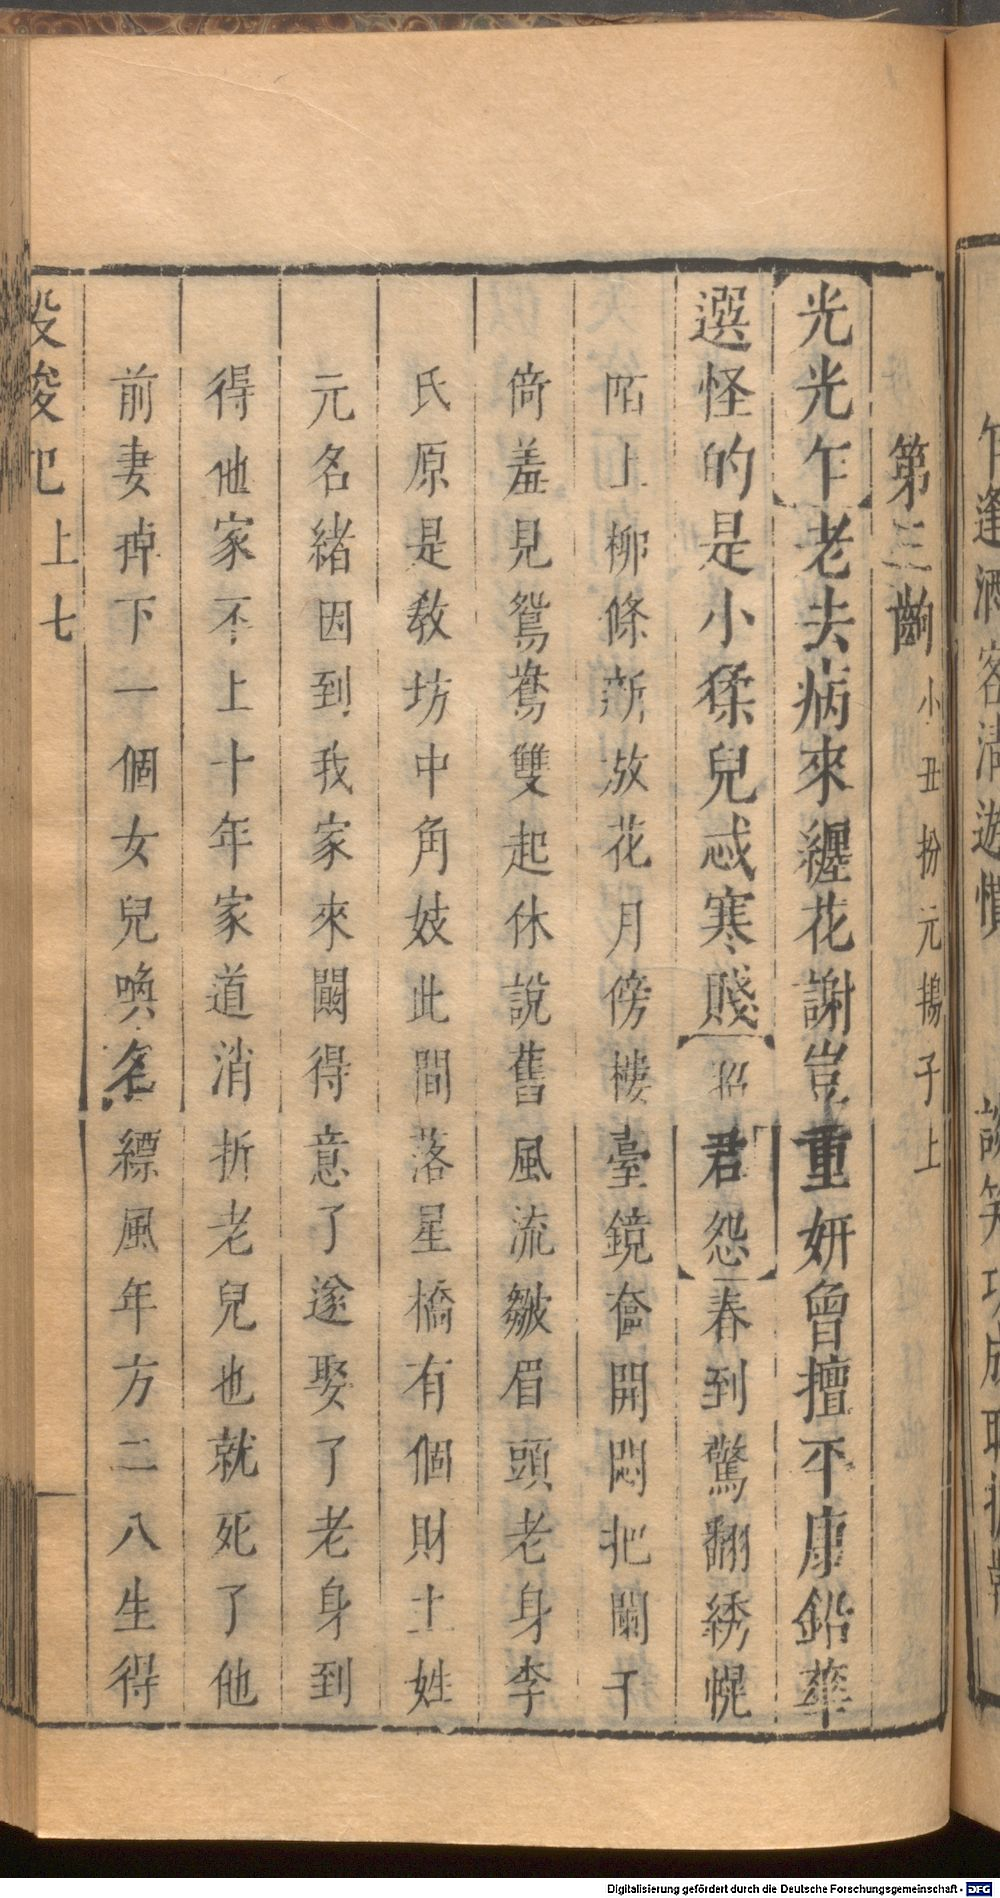 第三齣 小丑扮元搗子上
光光乍 老去病來纒花謝豈重妍曾擅平康鉛華
選怪的是小猱兒忒寒賤 招君怨 春到驚翻綉幌
陌上柳條新放花月傍樓臺鏡奩開悶把闌干
倚羞見鴛鴦雙起休說舊風流皺眉頭老身李
氏原是教坊中角妓此間落星橋有個財主姓
元名緒因到我家來闞得意了遂娶了老身到
得他家不上十年家道消折老兒也就死了他
前妻掉下一個女兒喚名縹風年方二八生得
投梭記 上 七
Digitalisierung gefördert durch die Deutsche Forschungsgemeinschaft - DFG